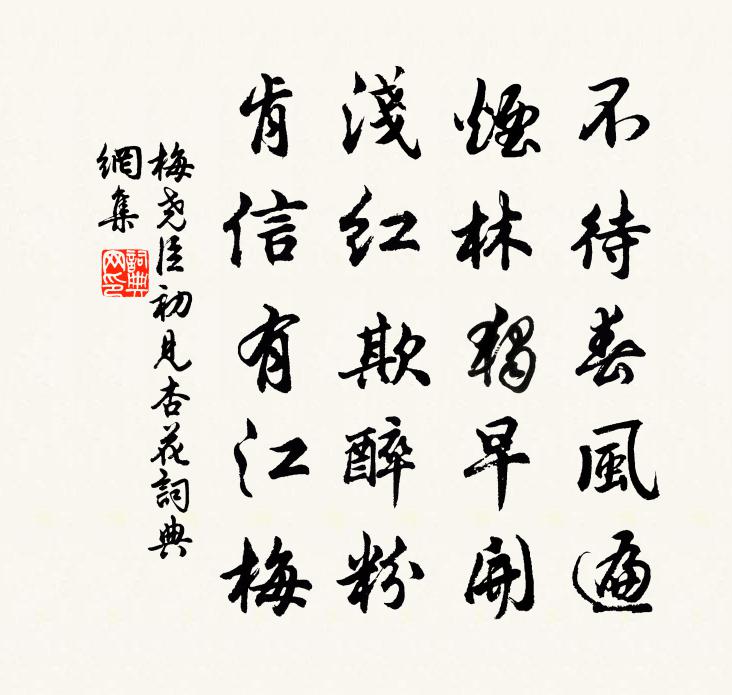 不待春風遍
煙林獨早開
淺紅欺醉粉
肯信有江梅
梅堯臣初見杏花詞典
網集
詞典
网印